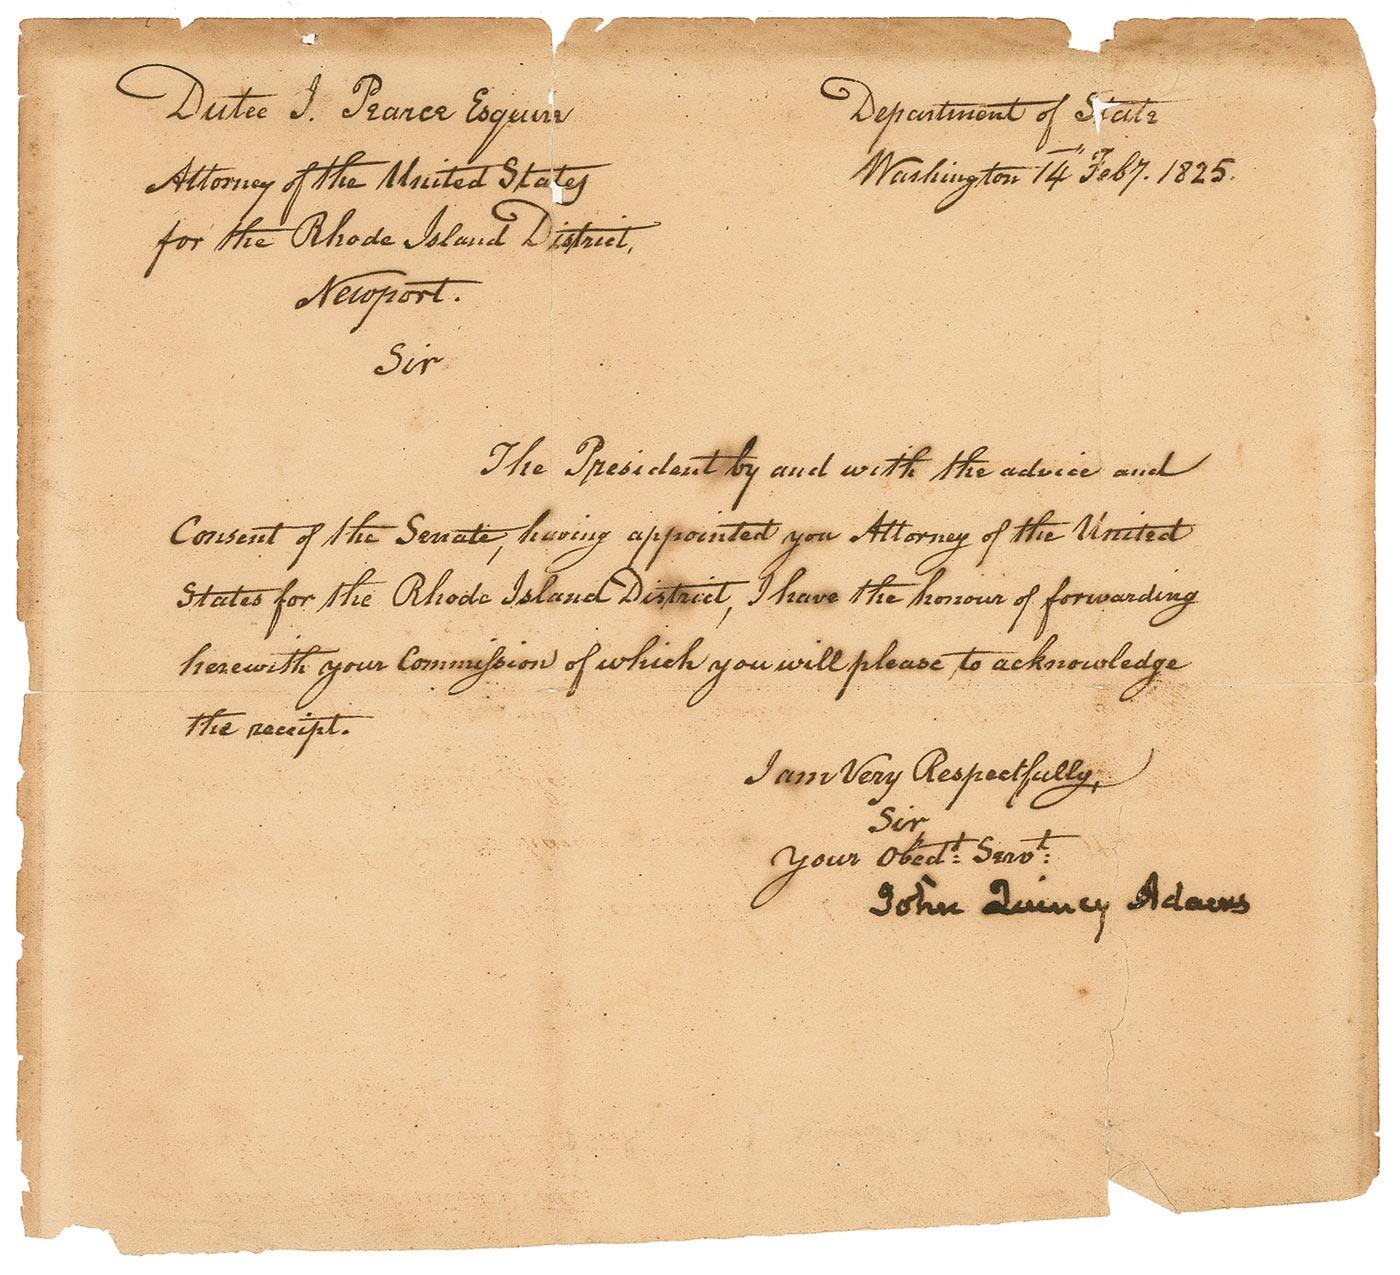 Dutee J. Pearce Esquire
Attorney of the United States
for the Rhode Island District,
Newport.
Department of State
Washington 14" Feby. 1825.
Sir
The President by and with the advice and
Consent of the Senate, having appointed you Attorney of the United
States for the Rhode Island District, I have the honour of forwarding
herewith your Commission of which you will please to acknowledge
the receipt.
I am Very Respectfully,
Sir,
Your Obedt: Servt:
John Quincy Adams